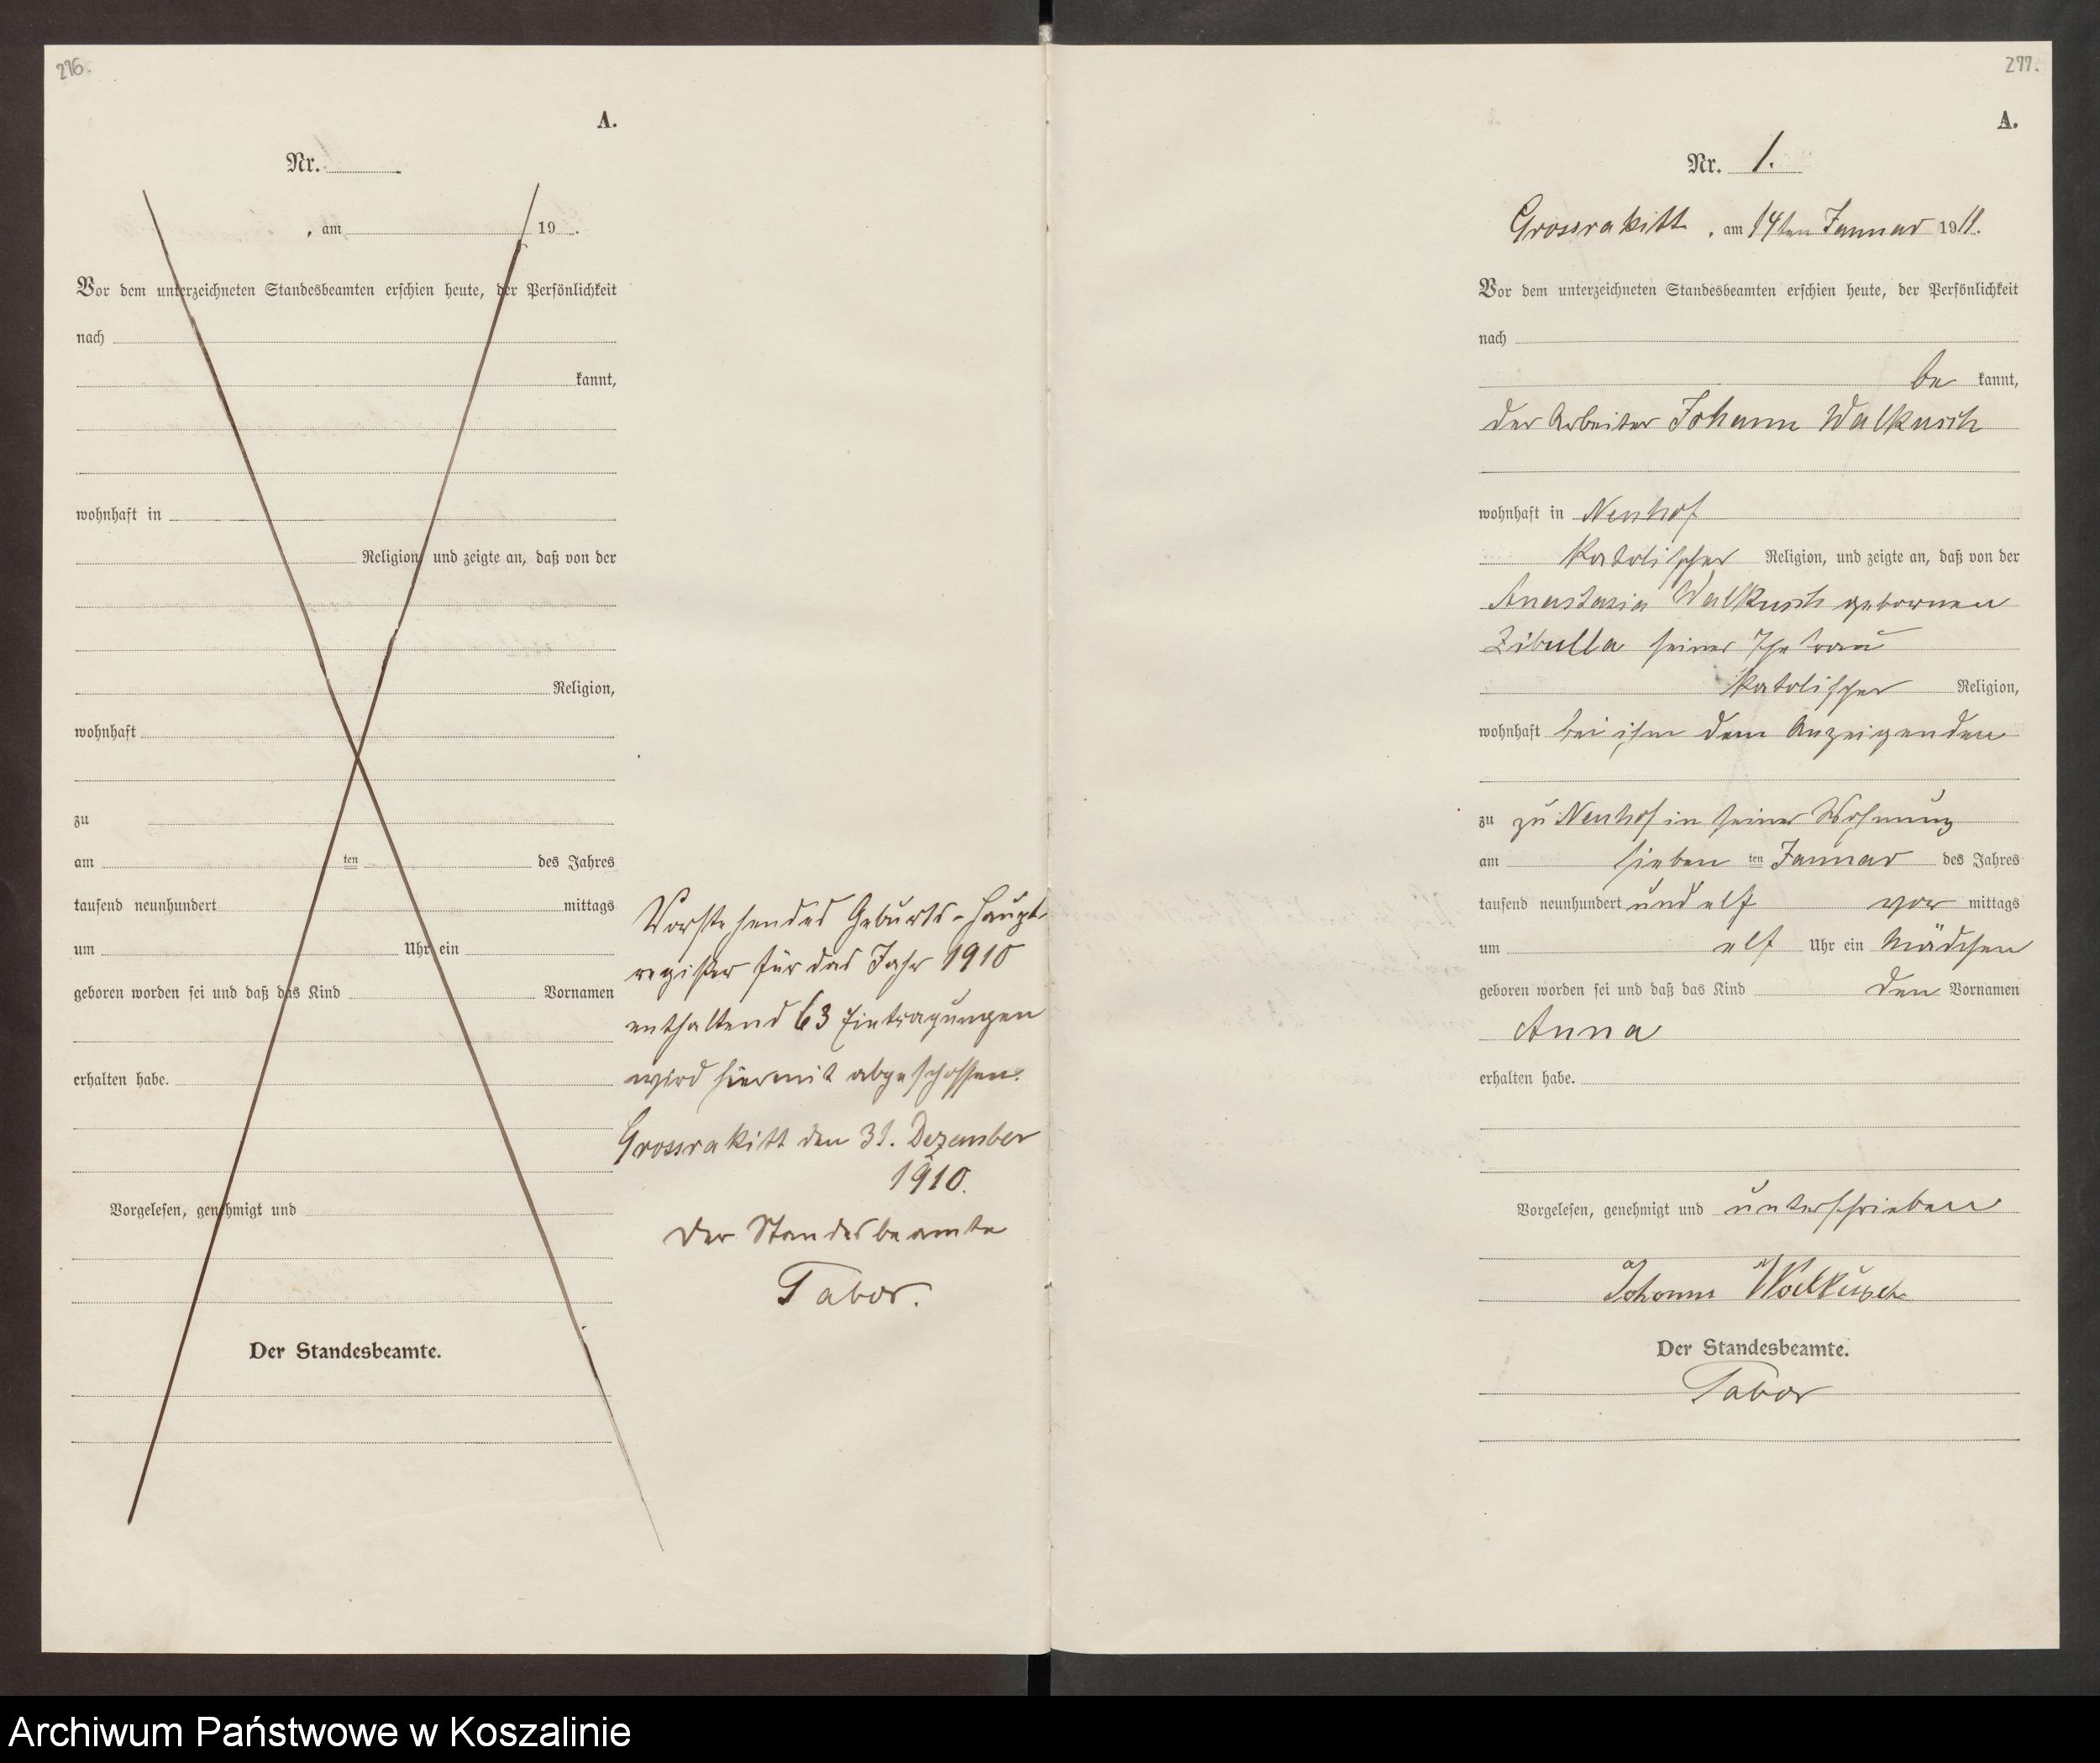 276.
A.
Nr.
, am 19 .
Vor dem unterzeichneten Standesbeamten erschien heute, der Persönlichkeit
nach
kannt,
wohnhaft in
Religion, und zeigte an, daß von der
Religion,
wohnhaft
zu
am ten des Jahres
tausend neunhundert mittags
um Uhr ein
geboren worden sei und daß das Kind Vornamen
erhalten habe.
Vorgelesen, genehmigt und
Der Standesbeamte.
Vorstehendes Geburts-Haupt-
register für das Jahr 1910
enthaltend 63 Eintragungen
wird hiermit abgeschossen.
Grossrakitt den 31. Dezember
1910.
Der Standesbeamte
Tabor.
277.
A.
Nr. 1.
Grossrakitt, am 14ten Januar 1911.
Vor dem unterzeichneten Standesbeamten erschien heute, der Persönlichkeit
nach
be kannt,
der Arbeiter Johann Walkusch
wohnhaft in Neuhof
katolischer Religion, und zeigte an, daß von der
Anastasia Walkusch gebornen
Zibulla seiner Ehefrau
katolischer Religion,
wohnhaft bei ihm dem Anzeigenden
zu zu Neuhof in seiner Wohnung
am sieben ten Januar des Jahres
tausend neunhundert und elf vor mittags
um elf Uhr ein Mädchen
geboren worden sei und daß das Kind den Vornamen
Anna
erhalten habe.
Vorgelesen, genehmigt und unterschrieben
Johann Walkusch
Der Standesbeamte.
Tabor
Archiwum Państwowe w Koszalinie